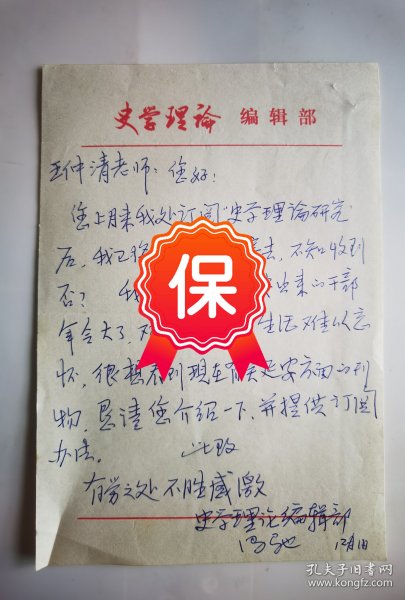 史学理论 编辑部
王仲清老师：您好！
您上月来我处订阅《史学理论研究》
后，我已将 去，不知收到
否？ 我 出来的干部
年令大了，对 生活难以忘
怀，很想看到现在有关延安方面的刊
物，恳请您介绍一下，并提供订阅
办法。 此致
有劳之处不胜感激
史学理论编辑部
冯 12月1日
保
孔夫子旧书网
www.kongfz.com